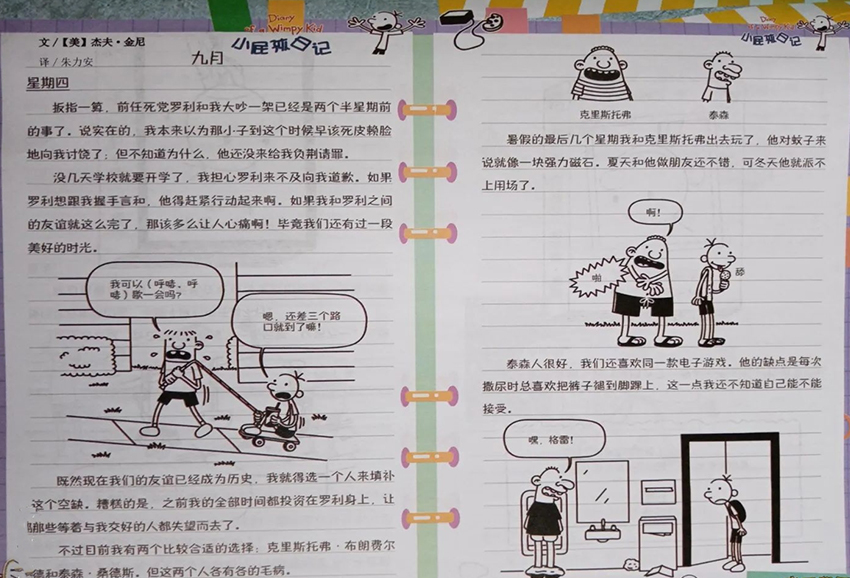 Diary
of a Wimpy Kid
小屁孩日记
文/【美】杰夫·金尼
译/朱力安
九月
星期四
扳指一算，前任死党罗利和我大吵一架已经是两个半星期前
的事了。说实在的，我本来以为那小子到这个时候早该死皮赖脸
地向我讨饶了；但不知道为什么，他还没来给我负荆请罪。
没几天学校就要开学了，我担心罗利来不及向我道歉。如果
罗利想跟我握手言和，他得赶紧行动起来啊。如果我和罗利之间
的友谊就这么完了，那该多么让人心痛啊！毕竟我们还有过一段
美好的时光。
我可以（呼哧，呼
哧）歇一会吗？
嗯，还差三个路
口就到了嘛！
既然现在我们的友谊已经成为历史，我就得选一个人来填补
这个空缺。糟糕的是，之前我的全部时间都投资在罗利身上，让
那些等着与我交好的人都失望而去了。
不过目前我有两个比较合适的选择：克里斯托弗·布朗费尔
德和泰森·桑德斯。但这两个人各有各的毛病。
Diary
of a Wimpy Kid
小屁孩日记
克里斯托弗
泰森
暑假的最后几个星期我和克里斯托弗出去玩了，他对蚊子来
说就像一块强力磁石。夏天和他做朋友还不错，可冬天他就派不
上用场了。
啊！
啪
舔
泰森人很好，我们还喜欢同一款电子游戏。他的缺点是每次
撒尿时总喜欢把裤子褪到脚踝上，这一点我还不知道自己能不能
接受。
嘿，格雷！